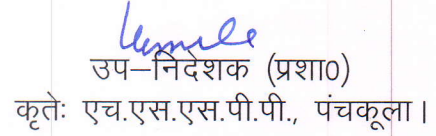 उप–निदेशक (प्रशा0)
कृतेः एच.एस.एस.पी.पी., पंचकूला।